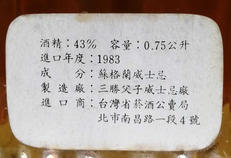 酒精：43% 容量：0.75公升
進口年度：1983
成分：蘇格蘭威士忌
製造廠：三勝父子威士忌廠
進口商：台灣省菸酒公賣局
北市南昌路一段4號